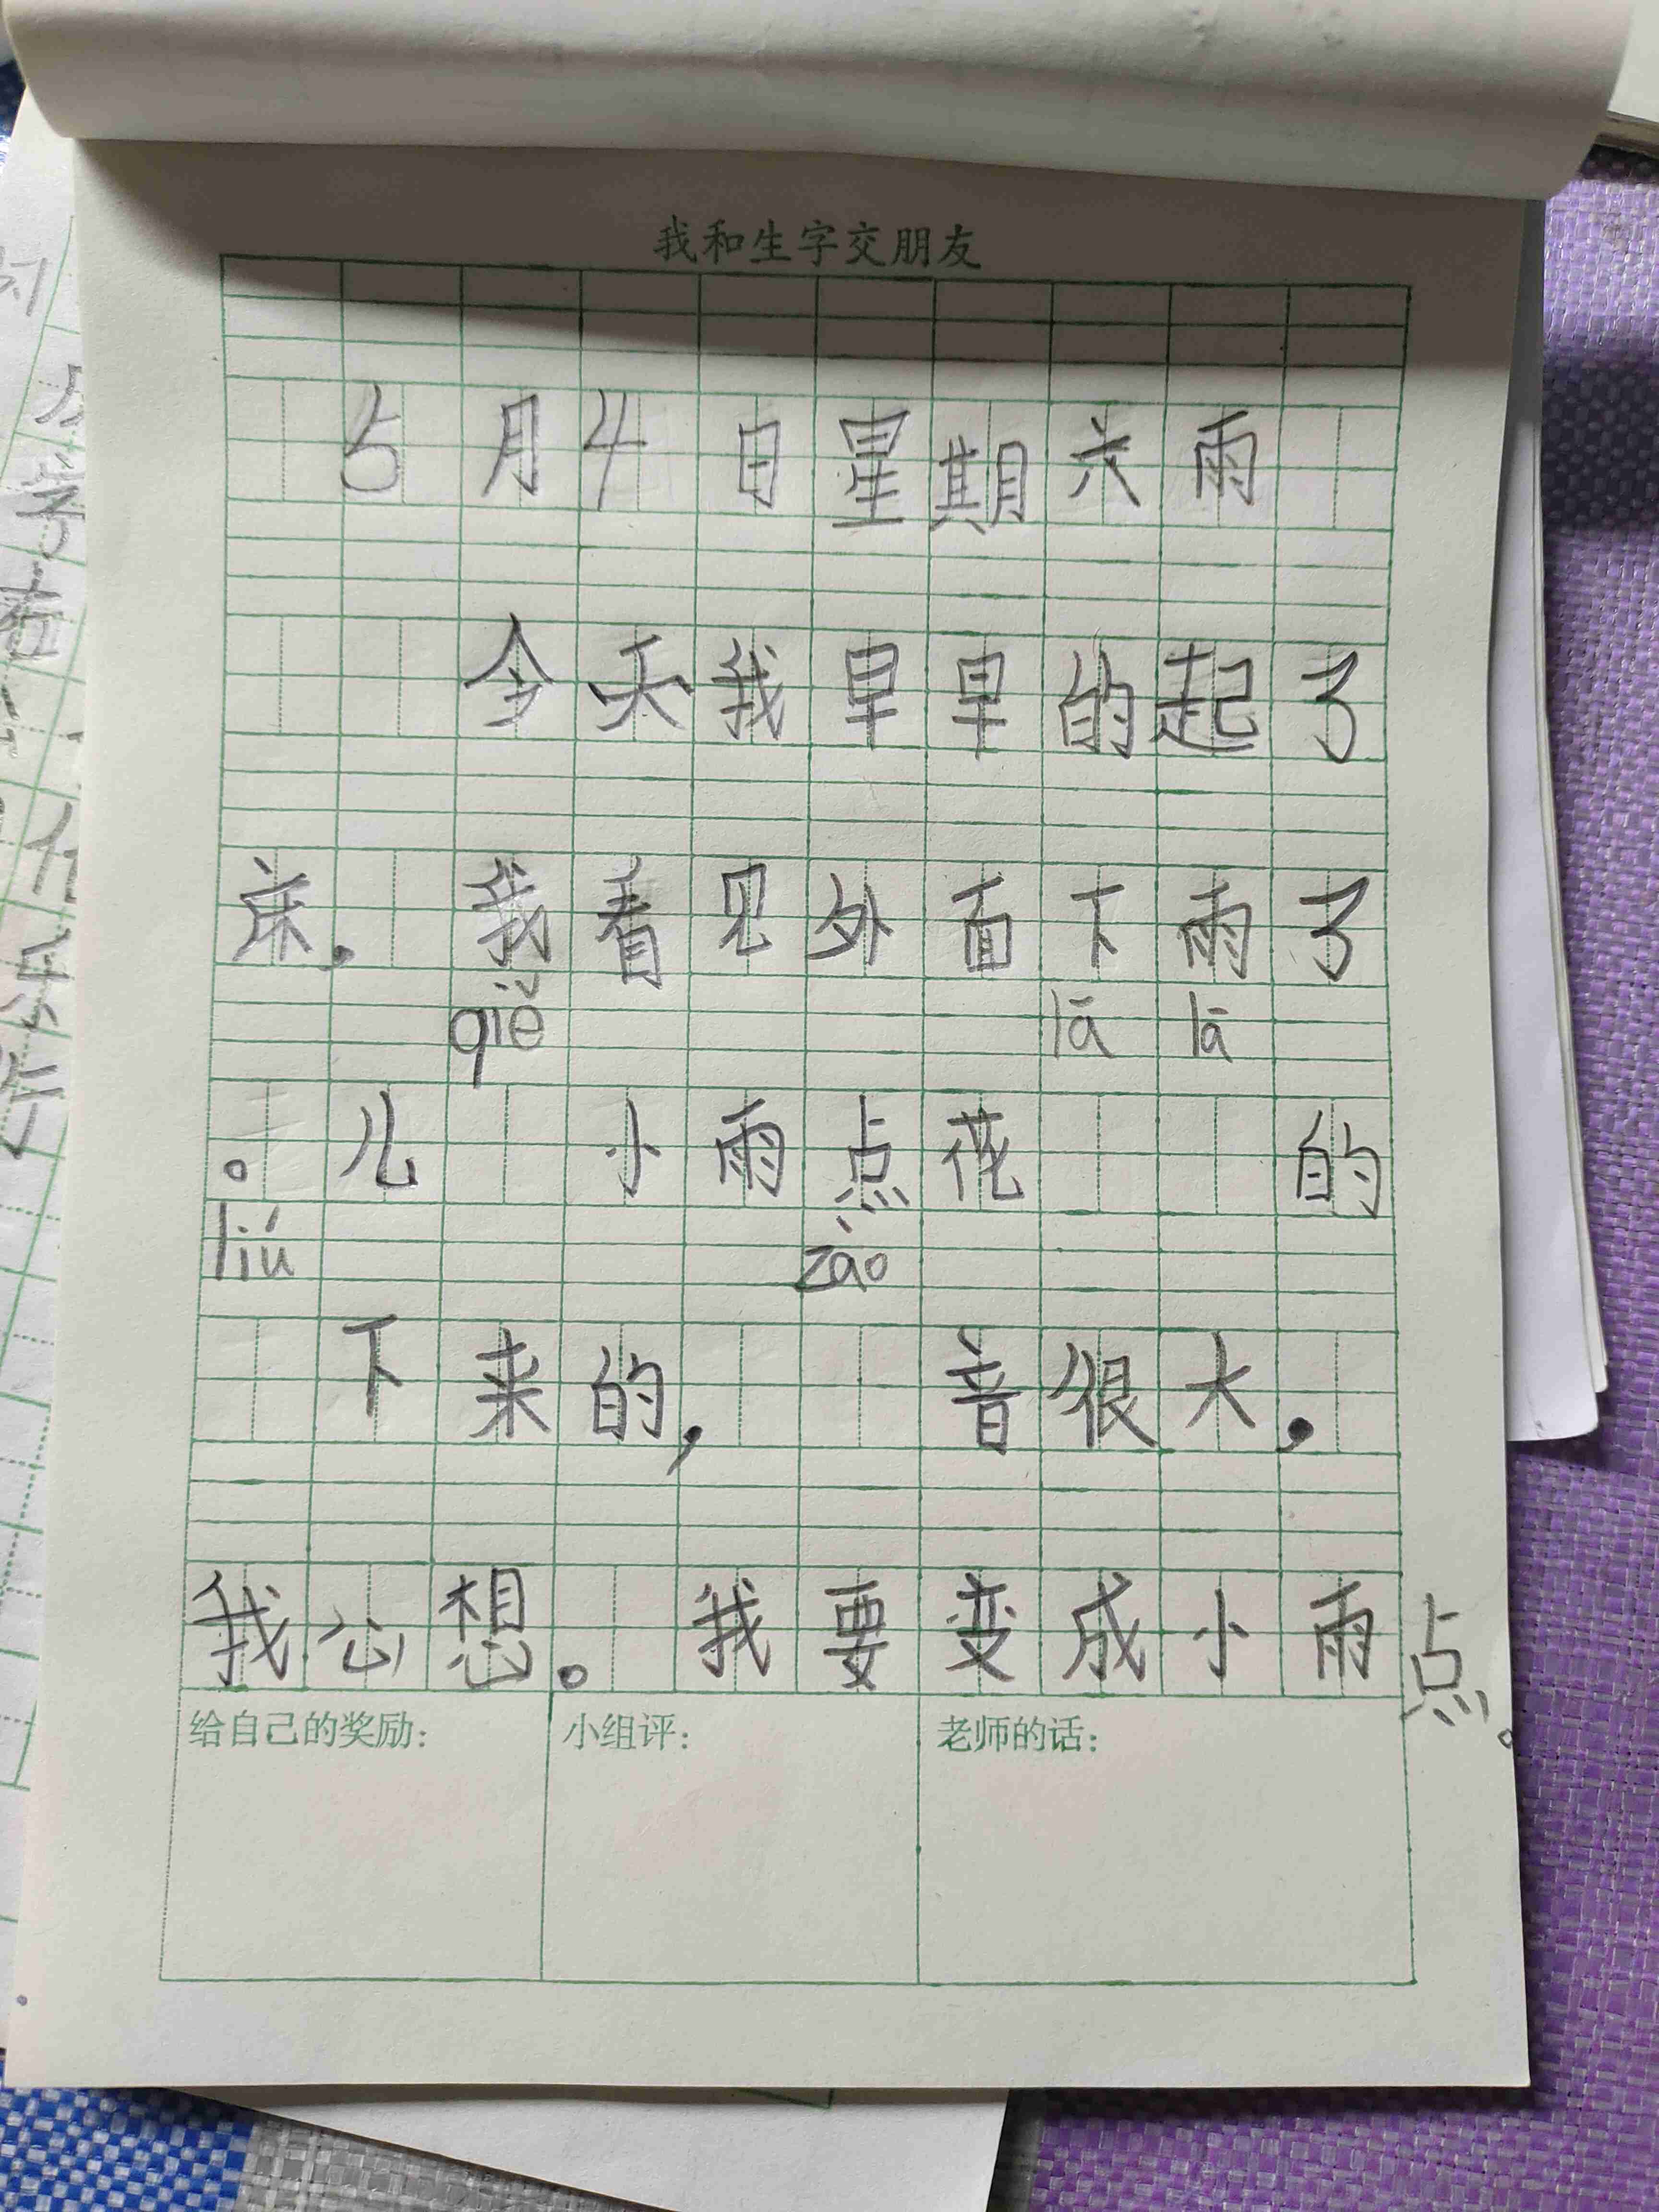 我和生字交朋友
5月4日星期六雨
今天我早早的起了
床，我看见外面下雨了
qiě lā lā
。儿 小雨点花 的
liú zao
下来的， 音很大，
我心想。我要变成小雨点。
给自己的奖励： 小组评： 老师的话：